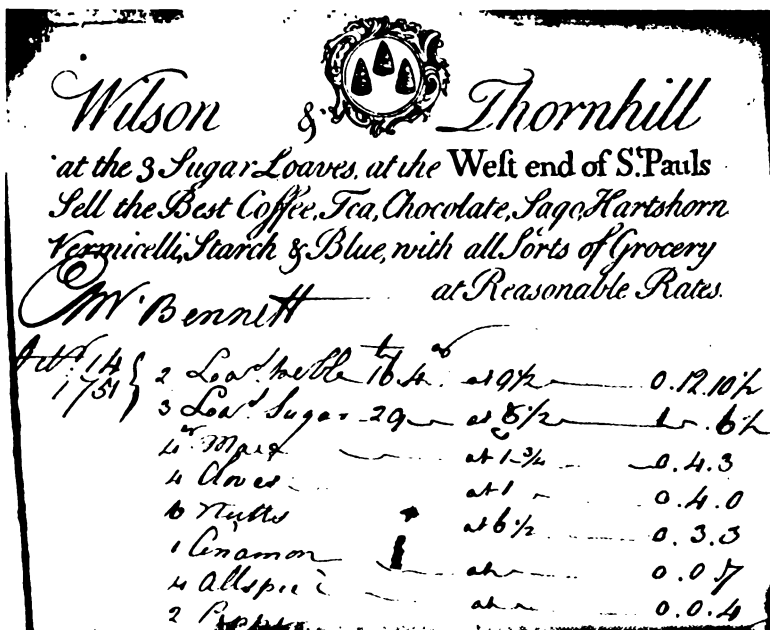 Wilson & Thornhill
at the 3 Sugar Loaves, at the Weſt end of S.t Pauls
Sell the Best Coffee, Tea, Chocolate, Sago, Hartshorn
Vermicelli, Starch & Blue, with all Sorts of Grocery
at Reasonable Rates.
Mr. Bennett
14 2 Loa.s 16.4 at 9½ 0.12.10½
1751 3 Loa.s Sugar 29 at 8½
4 at 1-¾ 0.4.3
4 Cloves at 1 0.4.0
6 Nutts at 6½ 0.3.3
1 Cinamon 0.0.7
4 Allspice 0.0.4
2